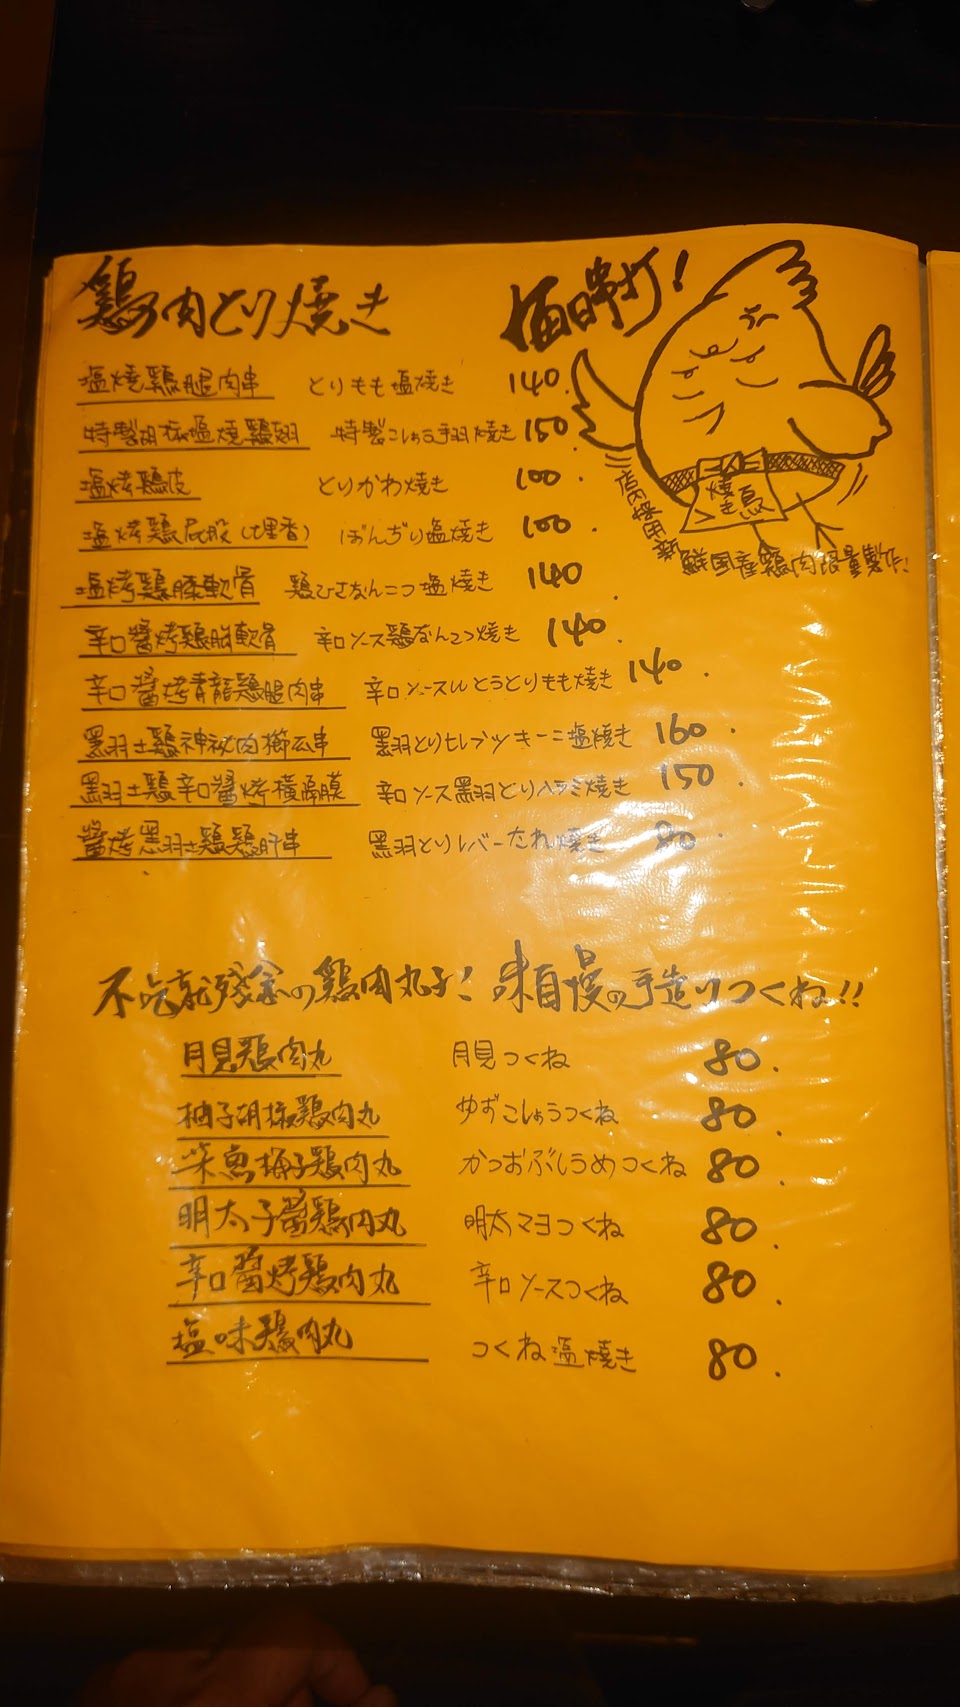 鶏肉とり焼き
毎日串打!
塩焼鶏腿肉串 とりもも塩焼き 140.
特製胡椒塩焼鶏翅 特製こしょう手羽焼き 150
塩烤鶏皮 とりかわ焼き 100.
塩烤鶏屁股(七里香) ぼんぢり塩焼き 100.
塩烤鶏膝軟骨 鶏ひざなんこつ塩焼き 140
辛口醬烤鶏胸軟骨 辛口ソース鶏なんこつ焼き 140.
辛口醬烤青龍鶏腿肉串 辛口ソースししとうとりもも焼き 140.
黒羽土鶏神秘肉櫛瓜串 黒羽とりセレブズッキーニ塩焼き 160.
黒羽土鶏辛口醬烤橫隔膜 辛口ソース黒羽とりハラミ焼き 150.
醬烤黒羽土鶏鶏肝串 黒羽とりレバーたれ焼き 80.
焼き鳥
店内採用新
鮮国産鶏肉限量製作!
不吃就残念の鶏肉丸子! 味自慢の手造りつくね!!
月見鶏肉丸 月見つくね 80.
柚子胡椒鶏肉丸 ゆずこしょうつくね 80.
柴魚梅子鶏肉丸 かつおぶしうめつくね 80.
明太子醬鶏肉丸 明太マヨつくね 80.
辛口醬烤鶏肉丸 辛口ソースつくね 80.
塩味鶏肉丸 つくね塩焼き 80.